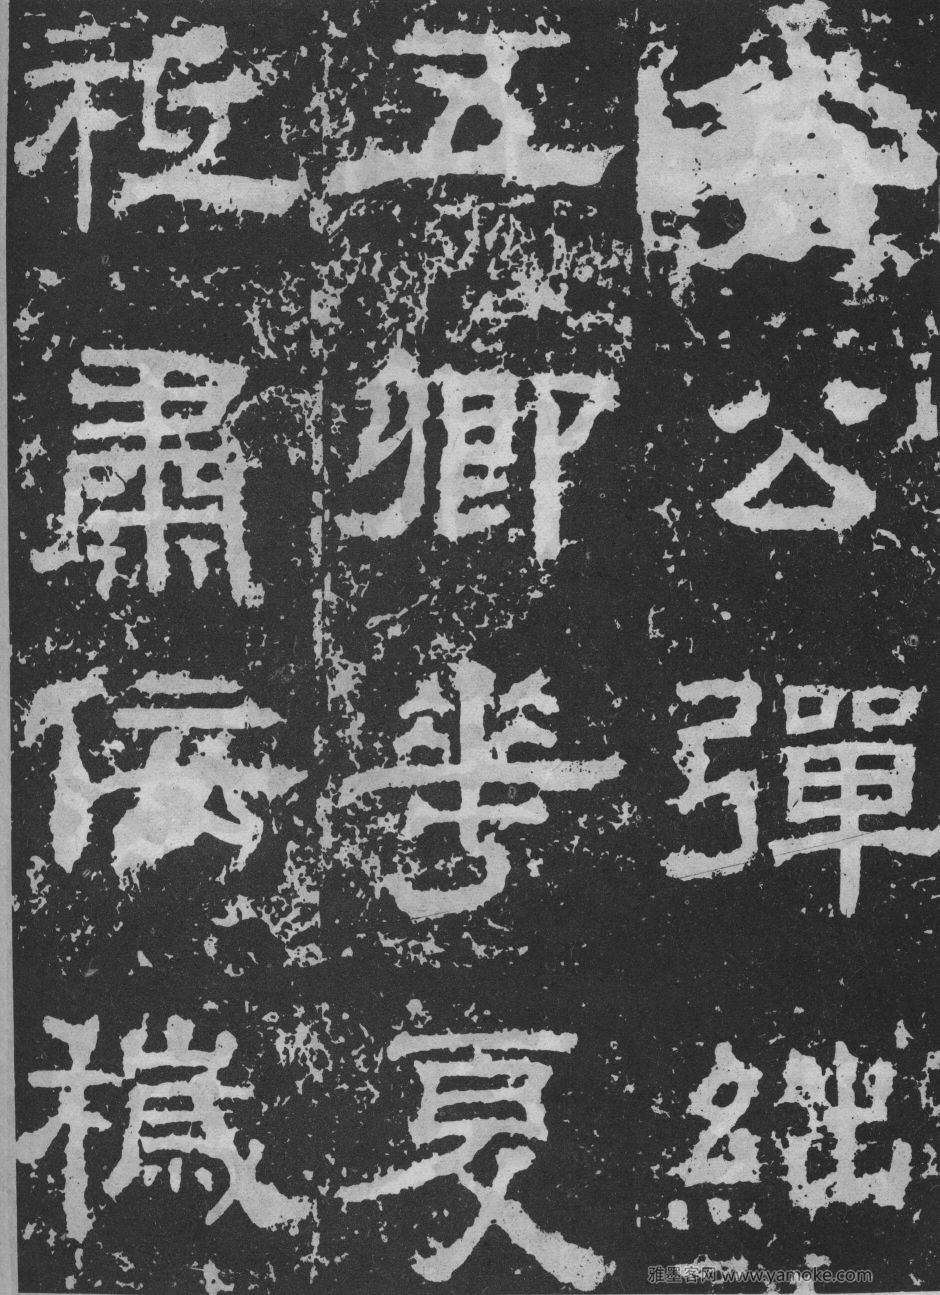 公彈絀
五卿華夏
祗肅佞穢
雅墨客网 www.yamoke.com